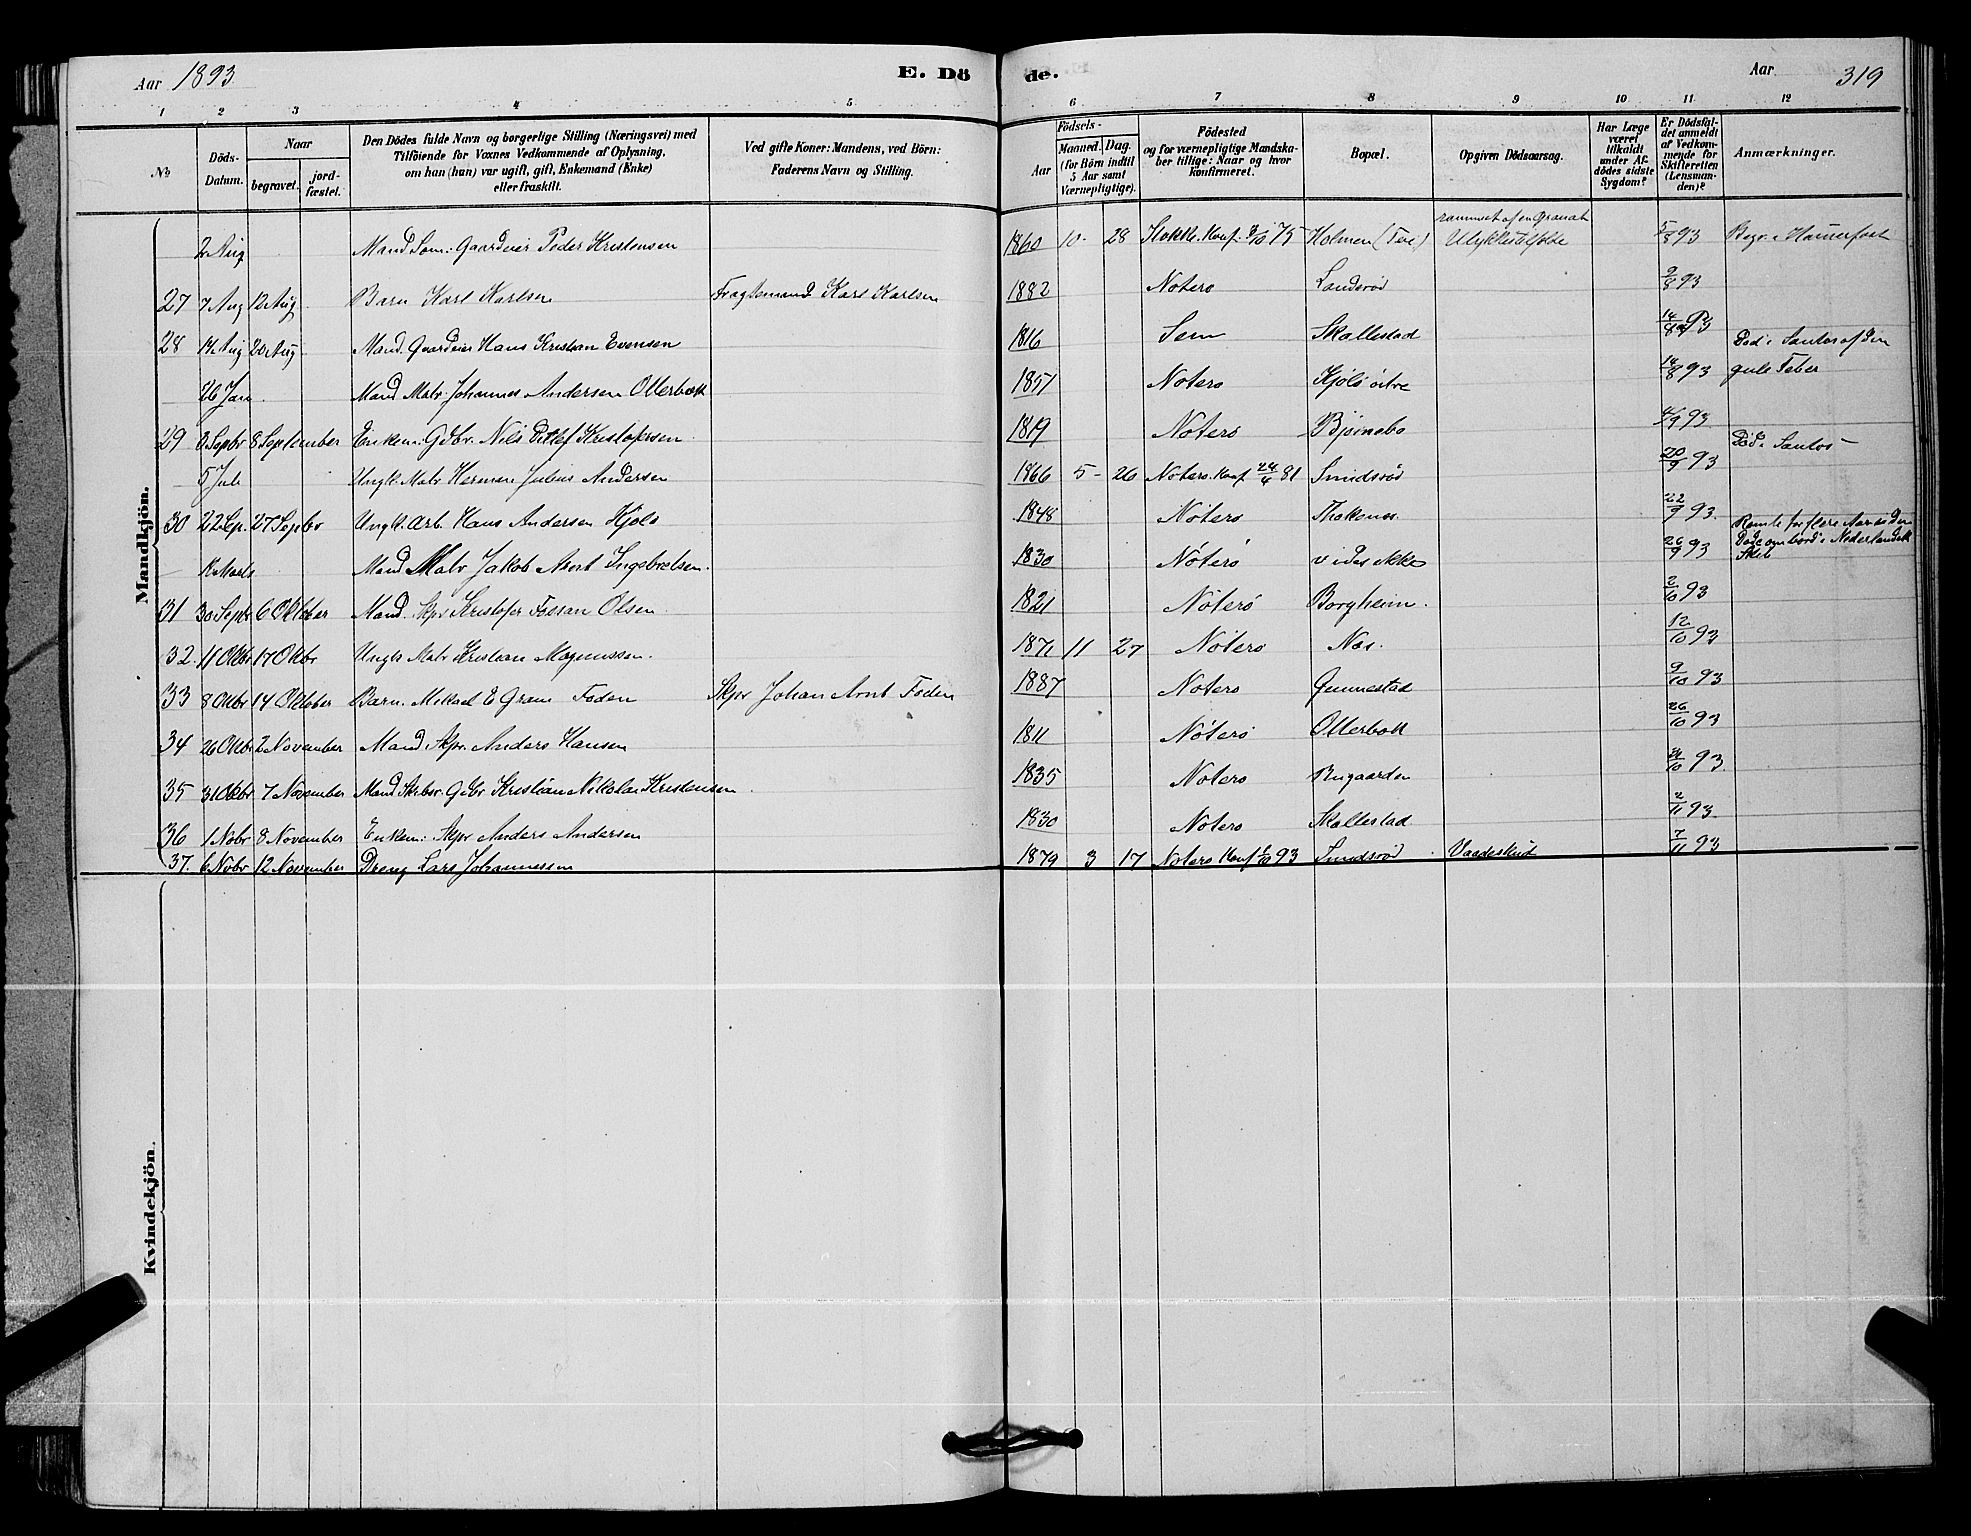 Aar 1893. E. Dö de. Aar 319
1 2 3 4 5 6 7 8 9 10 11 12
No Döds-Datum. Naar begravet. jord-fæstet. Den Dödes fulde Navn og borgerlige Stilling (Næringsvei) med Tilföiende for Voxnes Vedkommende af Oplysning, om han (hun) var ugift, gift, Enkemand (Enke) eller fraskilt. Ved gifte Koner: Mandens, ved Börn: Faderens Navn og Stilling. Födsels- Aar Maaned. Dag. (for Börn indtil 5 Aar samt Værnepligtige). Födested og for værnepligtige Mandskaber tillige: Naar og hvor konfirmeret. Bopæl. Opgiven Dödsaarsag. Har Læge været tilkaldt under Afdödes sidste Sygdom? Er Dödsfaldet anmeldt af Vedkommende for Skifteretten (Lensmanden)? Anmærkninger.
Mandkjön.
2 Aug Mand Søm: Gaardeier Peder Kristensen 1860 10- 28 Stokke. Konf. 3/10 75 Holmen (Tei) rammet af en Granat Ulykkestilfælde 5/8 93 Begr. i Hammerfest
27 7 Aug 12 Aug Barn Karl Karlsen Fragtemand Karl Karlsen 1882 Noterø Landsrød 9/8 93
28 14 Aug 20 Aug Mand. Gaardeier Hans Kristian Evensen 1816 Sem Skallestad 14/8 93
26 Jan Mand Matr. Johannes Andersen Ollerbæk 1851 Noterø Kjøle øitre 14/8 93 Død i Santos af den gule Feber
29 3 Septbr 8 September Enkem: Gdbr. Nils Ditlef Kristofersen 1819 Nøterø Bjørnebo 4/9 93
5 Juli Ungk. Matr Herman Julius Andersen 1866 5- 26 Nøterø. Konf 24/4 81 Smidsrød 20/9 93 Død i Santos
30 22 Sep. 27 Septbr Ungk. Arb. Hans Andersen Kjøle 1848 Nøterø Thokenes 22/9 93.
Marts Mand Matr Jakob Arnt Ingebretsen. 1830 Nøterø vides ikke 26/9 93 Rømte for flere Aar siden Døde ombord i Nederlandsk Skib
31 30 Septr 6 Oktober Mand. Skpr Kristofer Fresan Olsen 1821 Nøterø Borgheim. 2/10 93
32. 11 Oktbr 17 Oktbr Ungk Matr Kristian Magnussen. 1871 11 27 Nøterø Næs. 12/10 93
33 8 Oktbr 14 Oktober Barn. Mikael E Gram Foden Skpr Johan Arnt Foden 1887 Noterø Gunnestad 9/10 93
34 26 Oktbr 2 November Mand Skpr. Anders Hansen 1811 Nøterø Ollerbæk 26/10 93
35 31 Oktbr 7 November Mand Skibsr. Gdbr Kristian Nikolai Kristensen 1835 Noterø Bugaarden 31/10 93
36 1 Nobr 8 November Enkem: Skpr Anders Andersen 1830 Nøterø Skallestad 2/11 93.
37. 6 Nobr 12 November Dreng Lars Johannessen 1879 3 17 Noterø Konf 1/10 93 Smidsrød Vaadeskud 7/11 93
Kvindekjön.